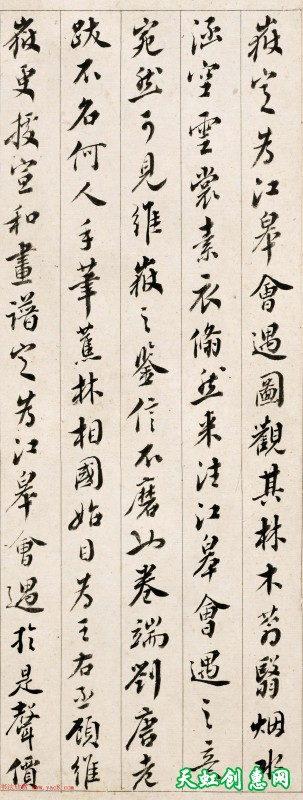 嶽定為江皋會遇圖觀其林木蓊翳烟水
涵空雲裳素衣翛然来往江皋會遇之意
宛然可見維嶽之鑒信不磨也卷端劉唐老
跋不名何人手筆蕉林相國始目為王右丞顧維
嶽更援宣和畫譜定為江皋會遇於是聲價
天虹创惠网